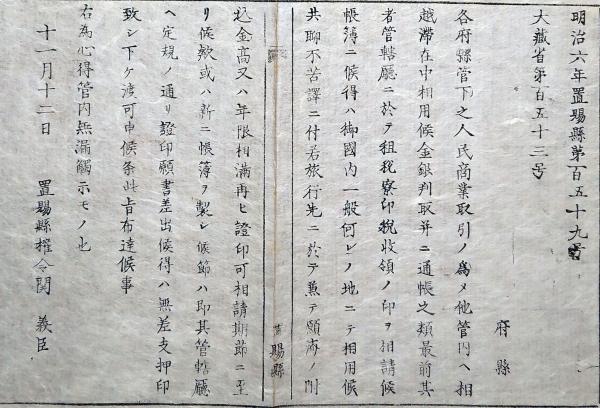 明治六年置賜縣第百五十九号
大藏省第百五十三号
府縣
各府縣管下之人民商業取引ノ爲メ他管内ヘ相
越滞在中相用候金銀判取并ニ通帳之類最前其
者管轄廳ニ於テ租税寮印税收領ノ印ヲ相請候
帳簿ニ候得ハ御國内一般何レノ地ニテ相用候
共聊不苦譯ニ付若旅行先ニ於テ兼テ願濟ノ附
込金高又ハ年限相満再ヒ證印可相請期節ニ至
リ候歟或ハ新ニ帳簿ヲ製シ候節ハ即其管轄廳
ヘ定規ノ通リ證印願書差出候得ハ無差支押印
致シ下ケ渡可申候条此旨布達候事
右為心得管内無漏觸示モノ也
十一月十二日 置賜縣權令関義臣
置賜縣